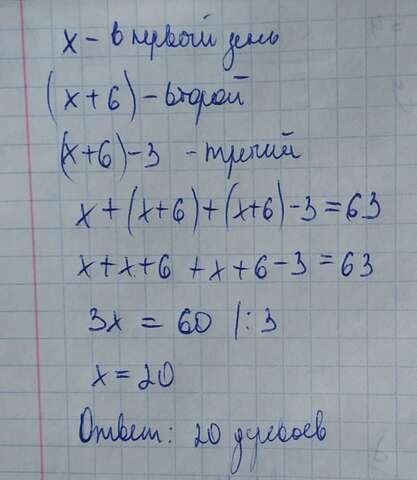 x - в первый день
(x+6) - второй
(x+6)-3 - третий
x+(x+6)+(x+6)-3=63
x+x+6+x+6-3=63
3x = 60 |:3
x=20
Ответ: 20